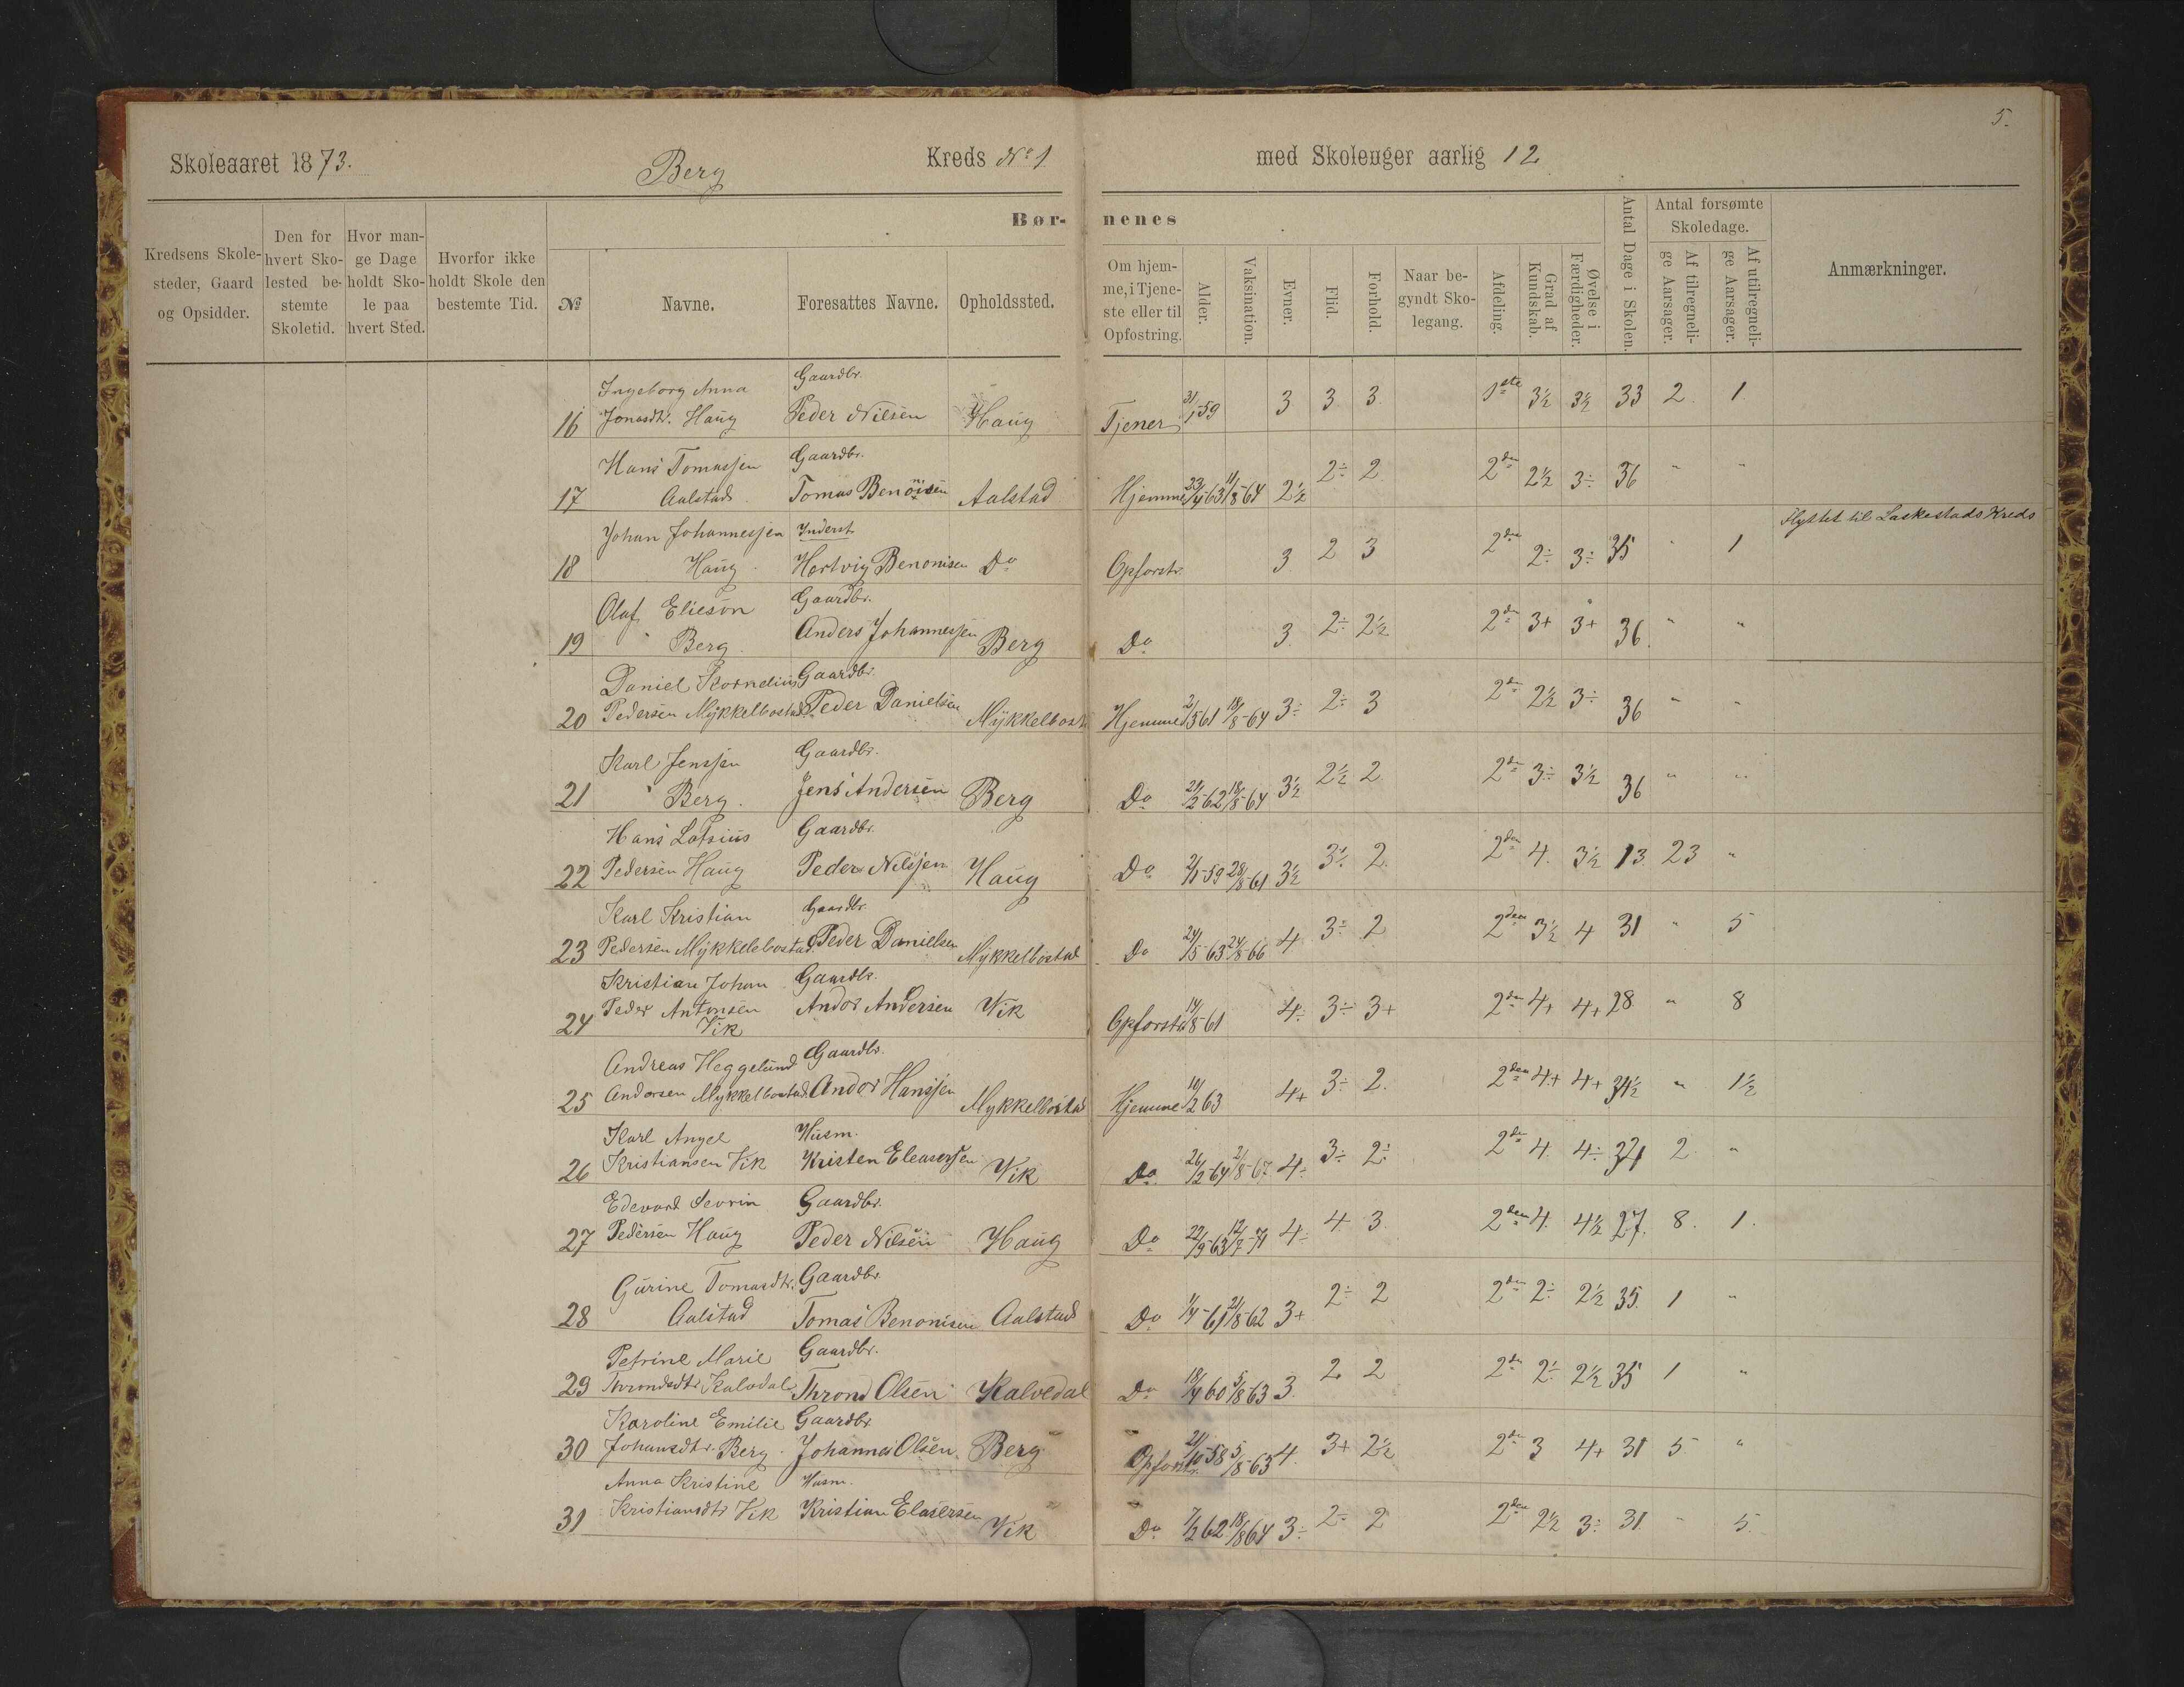 5.
Skoleaaret 1873. Berg Kreds No 1 med Skoleuger aarlig 12
Børnenes
Kredsens Skolesteder, Gaard og Opsidder.
Den for hvert Skolested bestemte Skoletid.
Hvor mange Dage holdt Skole paa hvert Sted.
Hvorfor ikke holdt Skole den bestemte Tid.
No
Navne.
Foresattes Navne.
Opholdssted.
Om hjemme, i Tjeneste eller til Opfostring.
Alder.
Vaksination.
Evner.
Flid.
Forhold.
Naar begyndt Skolegang.
Afdeling.
Grad af Kundskab.
Øvelse i Færdigheder.
Antal Dage i Skolen.
Antal forsømte Skoledage.
Af tilregnelige Aarsager.
Af utilregnelige Aarsager.
Anmærkninger.
16 Ingeborg Anna Jonasdtr. Haug Gaardbr. Peder Nilsen Haug Tjener 31/1 59 3 3 3 1ste 3½ 3½ 33 2 1
17 Hans Tomassen Aalstad Gaardbr. Tomas Benonisen Aalstad Hjemme 23/4-63 11/8-64 2½ 2÷ 2 2den 2½ 3÷ 36 " "
18 Johan Johannessen Haug Inderst. Hartvig Benonisen Do Opforstr. 3 2 3 2den 2÷ 3÷ 35 " 1 Flyttet til Laskestads Kreds
19 Olaf Elieson Berg Gaardbr. Anders Johannessen Berg Do 3 2÷ 2½ 2den 3+ 3+ 36 " "
20 Daniel Kornelius Pedersen Mykkelbostad Gaardbr. Peder Danielsen Mykkelbost. Hjemme 2/5 61 18/8-64 3÷ 2÷ 3 2den 2½ 3÷ 36 " "
21 Karl Jenssen Berg Gaardbr. Jens Andersen Berg Do 21/2-62 18/8-64 3½ 2½ 2 2den 3÷ 3½ 36 " "
22 Hans Lotsius Pedersen Haug Gaardbr. Peder Nilssen Haug Do 2/1-59 28/8-61 3½ 3½ 2 2den 4 3½ 13 23 "
23 Karl Kristian Pedersen Mykkelebostad Gaardbr. Peder Danielsen Mykkelbostad Do 24/5-63 24/8-66 4 3÷ 2 2den 3½ 4 31 " 5
24 Kristian Johan Peder Antonsen Vik Gaardbr. Andor Andersen Vik Opforstr. 14/8-61 4÷ 3÷ 3+ 2den 4+ 4+ 28 " 8
25 Andreas Heggelund Andorsen Mykkelbostad Gaardbr. Andor Hanssen Mykkelbostad Hjemme 10/2 63 4+ 3÷ 2 2den 4+ 4+ 34½ " 1½
26 Karl Angel Kristiansen Vik Husm. Kristen Eleasersen Vik Do 26/2-64 2/8-67 4÷ 3÷ 2÷ 2den 4 4÷ 2 "
27 Edevard Sevrin Pedersen Haug Gaardbr. Peder Nilsen Haug Do 22/9-63 12/7-71 4÷ 4 3 2den 4 4½ 27 8 1
28 Gurine Tomasdtr. Aalstad Gaardbr. Tomas Benonisen Aalstad Do 1/4-61 21/8-62 3+ 2÷ 2 2den 2÷ 2½ 35 1 "
29 Petrine Marie Throndsdtr Kalvdal Gaardbr. Thrond Olsen Kalvedal Do 18/4 60 5/8 63 3 2 2 2den 2÷ 2½ 35 1 "
30 Karoline Emilie Johansdtr. Berg Gaardbr. Johannes Olsen Berg Opforstr. 21/10-58 5/8-63 4 3+ 2½ 2den 3 4+ 31 5 "
31 Anna Kristine Kristiansdtr Vik Husm. Kristian Elasersen Vik Do 7/2 62 18/8 64 3÷ 2÷ 2 2den 2½ 3÷ 31 " 5